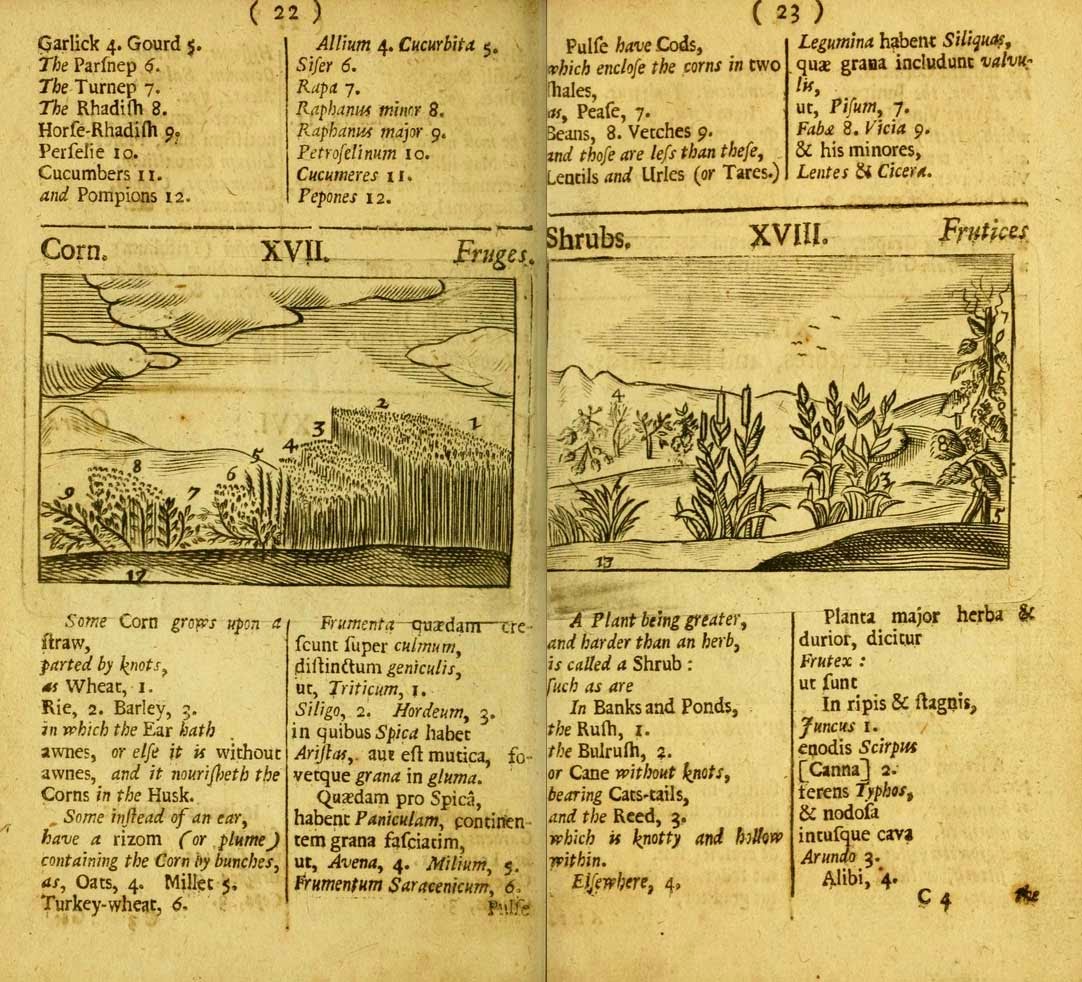 ( 22 )
Garlick 4. Gourd 5.
The Parſnep 6.
The Turnep 7.
The Rhadiſh 8.
Horſe-Rhadiſh 9.
Perſelie 10.
Cucumbers 11.
and Pompions 12.
Allium 4. Cucurbita 5.
Siſer 6.
Rapa 7.
Raphanus minor 8.
Raphanus major 9.
Petroſelinum 10.
Cucumeres 11.
Pepones 12.
Corn. XVII. Fruges.
1
2
3
4
5
6
7
8
9
17
Some Corn grows upon a
ſtraw,
parted by knots,
as Wheat, 1.
Rie, 2. Barley, 3.
in which the Ear hath
awnes, or elſe it is without
awnes, and it nouriſheth the
Corns in the Husk.
Some inſtead of an ear,
have a rizom (or plume)
containing the Corn by bunches,
as, Oats, 4. Millet 5.
Turkey-wheat, 6.
Frumenta quædam cre-
ſcunt ſuper culmum,
diſtinctum geniculis,
ut, Triticum, 1.
Siligo, 2. Hordeum, 3.
in quibus Spica habet
Ariſtas, aut eſt mutica, fo-
vetque grana in gluma.
Quædam pro Spicâ,
habent Paniculam, continen-
tem grana faſciatim,
ut, Avena, 4. Milium, 5.
Frumentum Saracenicum, 6.
Pulſe
( 23 )
Pulſe have Cods,
which encloſe the corns in two
ſhales,
as, Peaſe, 7.
Beans, 8. Vetches 9.
and thoſe are leſs than theſe,
Lentils and Urles (or Tares.)
Legumina habent Siliquas,
quæ grana includunt valvu-
lis,
ut, Piſum, 7.
Fabæ 8. Vicia 9.
& his minores,
Lentes & Cicera.
Shrubs. XVIII. Frutices
4
3
5
13
A Plant being greater,
and harder than an herb,
is called a Shrub :
ſuch as are
In Banks and Ponds,
the Ruſh, 1.
the Bulruſh, 2.
or Cane without knots,
bearing Cats-tails,
and the Reed, 3.
which is knotty and hollow
within.
Elſewhere, 4.
Planta major herba &
durior, dicitur
Frutex :
ut ſunt
In ripis & ſtagnis,
Juncus 1.
enodis Scirpus
[Canna] 2.
ferens Typhos,
& nodoſa
intuſque cava
Arundo 3.
Alibi, 4.
C 4 the